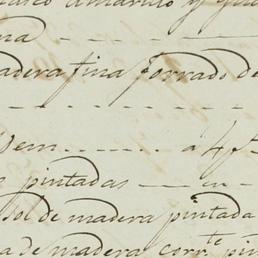 amarillo y
madera fina forrado de
Idem - - - - - a 4 p.s
pintadas - - en -
sol de madera pintada
a de madera corr.te pin